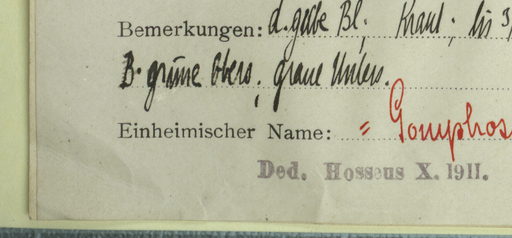 Bemerkungen: d. gelbe Bl; Kraut; bis 3
B. grüne Obers., graue Unters.
Einheimischer Name: = Gomphos
Ded. Hosseus X. 1911.